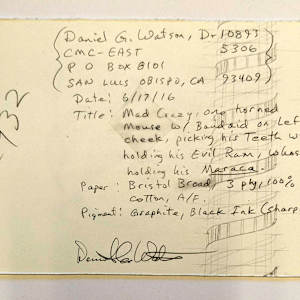 Daniel G. Watson, Dr 10893
CMC-EAST 5306
P O BOX 8101
SAN LUIS OBISPO, CA 93409
932
Date: 6/17/16
Title: Mad Crazy, one horned
Mouse w/ Bandaid on Left
cheek, picking his Teeth w
holding his Evil Ram, whos
holding his Maraca.
Paper: Bristol Broad, 3 ply, 100%
cotton, A/F.
Pigment: Graphite, Black Ink (sharp